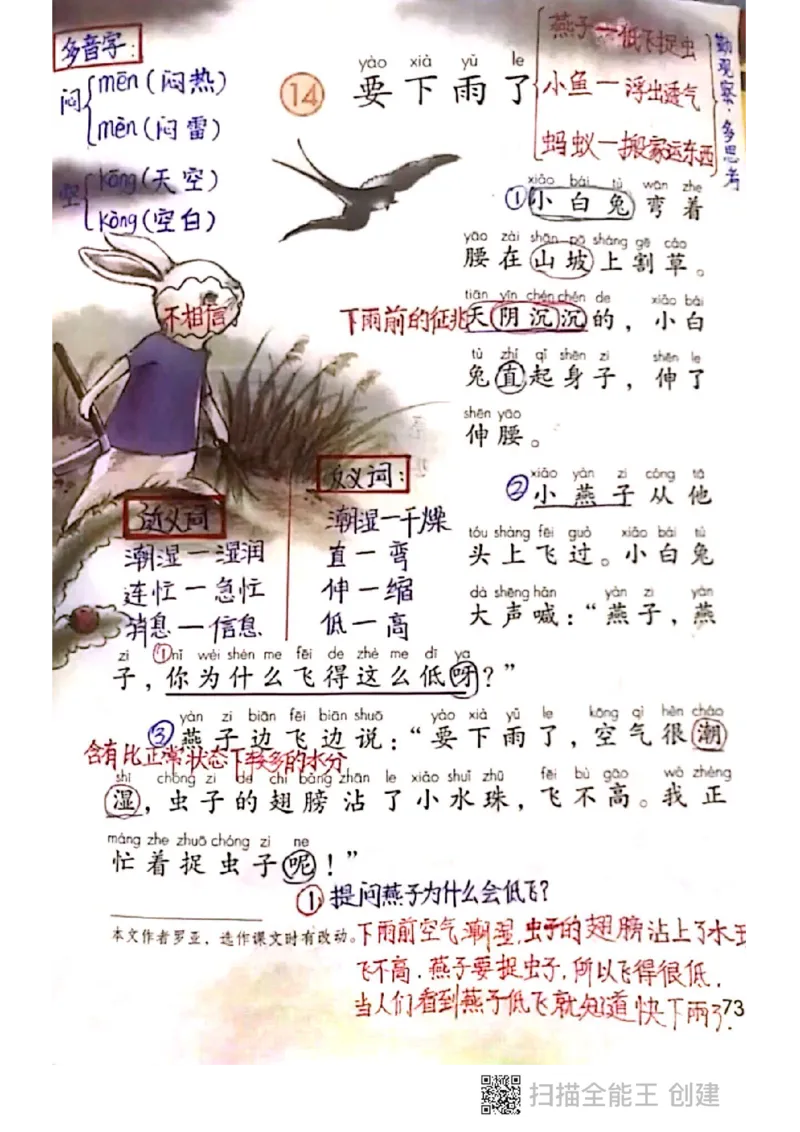 多音字:
闷 mēn(闷热)
mèn(闷雷)
空 kōng(天空)
kòng(空白)
yào xià yǔ le
14 要下雨了
燕子—低飞捉虫
小鱼—浮出透气
蚂蚁—搬家运东西
勤观察·多思考
xiǎo bái tù wān zhe
①小白兔弯着
yāo zài shān pō shàng gē cǎo
腰在山坡上割草。
tiān yīn chén chén de xiǎo bái
天阴沉沉的，小白
下雨前的征兆
不相信
tù zhí qǐ shēn zi shēn le
兔直起身子，伸了
shēn yāo
伸腰。
xiǎo yàn zi cóng tā
②小燕子从他
tóu shàng fēi guò xiǎo bái tù
头上飞过。小白兔
dà shēng hǎn yàn zi yàn
大声喊：“燕子，燕
近义词
潮湿—湿润
连忙—急忙
消息—信息
反义词:
潮湿—干燥
直—弯
伸—缩
低—高
zi ①nǐ wèi shén me fēi de zhè me dī ya
子，你为什么飞得这么低呀？”
yàn zi biān fēi biān shuō yào xià yǔ le kōng qì hěn cháo
③燕子边飞边说：“要下雨了，空气很潮
含有比正常状态下较多的水分
shī chóng zi de chì bǎng zhān le xiǎo shuǐ zhū fēi bù gāo wǒ zhèng
湿，虫子的翅膀沾了小水珠，飞不高。我正
máng zhe zhuō chóng zi ne
忙着捉虫子呢！”
①提问燕子为什么会低飞?
本文作者罗亚，选作课文时有改动。
下雨前空气潮湿,虫子的翅膀沾上了水
飞不高.燕子要捉虫子,所以飞得很低.
当人们看到燕子低飞就知道快下雨了.
73
扫描全能王 创建